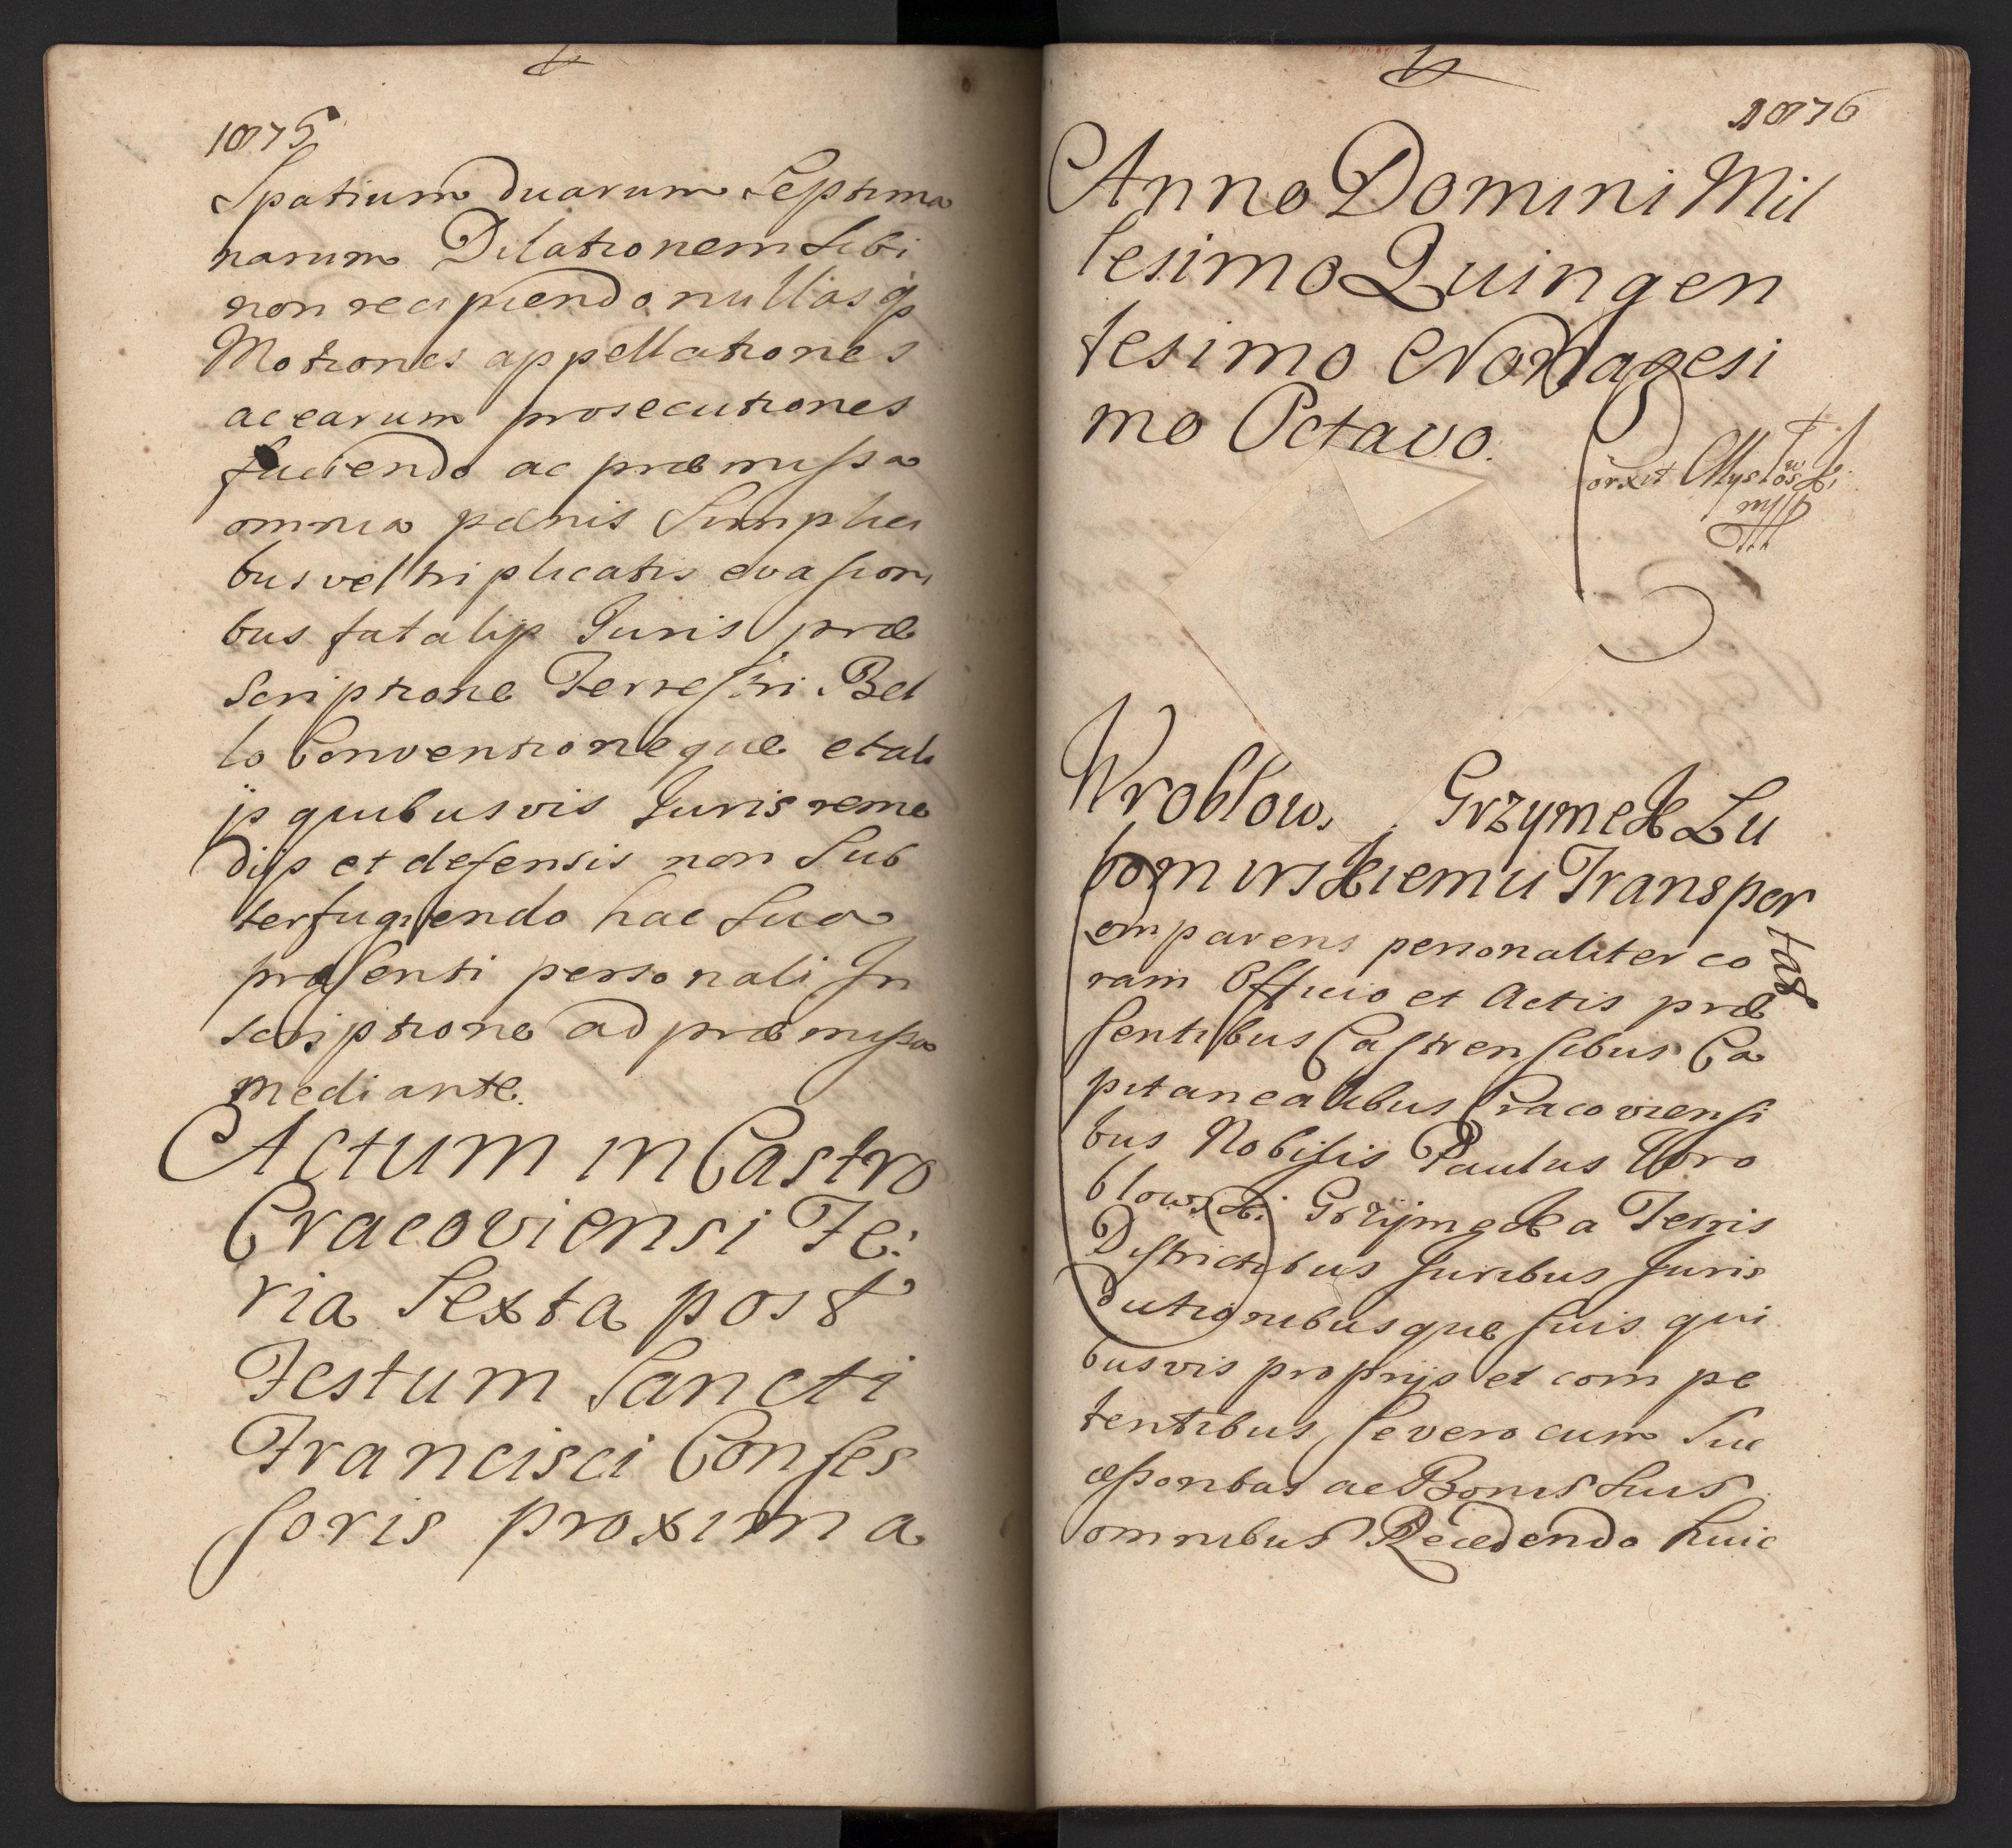 1075
Spatium duarum Septima
narum Dilationem Sibi
non recipiendo nullasq3
Motiones appellationes
acearum prosecutiones
faciendo ac præmissa
omnia pænis Simplici
bus vel triplicatis evasioni
bus fatalijs Juris præ
scriptione Terrestri Bel
lo Conventioneque et ali
js quibusvis Juris reme
dijs et defensis non Sub
terfugiendo hac Sua
præsenti personali In
scriptione ad præmissa
mediante.
Actum in Castro
Cracoviensi Fe:
ria Sexta post
Festum Sancti
Francisci Confes
soris proxima
1076
Anno Domini Mil
lesimo Quingen
tesimo Nonagesi
mo Octavo.
Wroblow. Grzymek Lu
bomirskiemu Transper
tas
Comparens personaliter co
ram Officio et Actis præ
sentibus Castrensibus Ca
pitanealibus Cracoviensi
bus Nobilis Paulus Wro
blowski Grzymek a Terris
Districtibus Juribus Juris
dictionibusque suis qui
busvis proprijs et compe
tentibus se vero cum Suc
cessoribus ac Bonis Suis
omnibus Recedendo huic